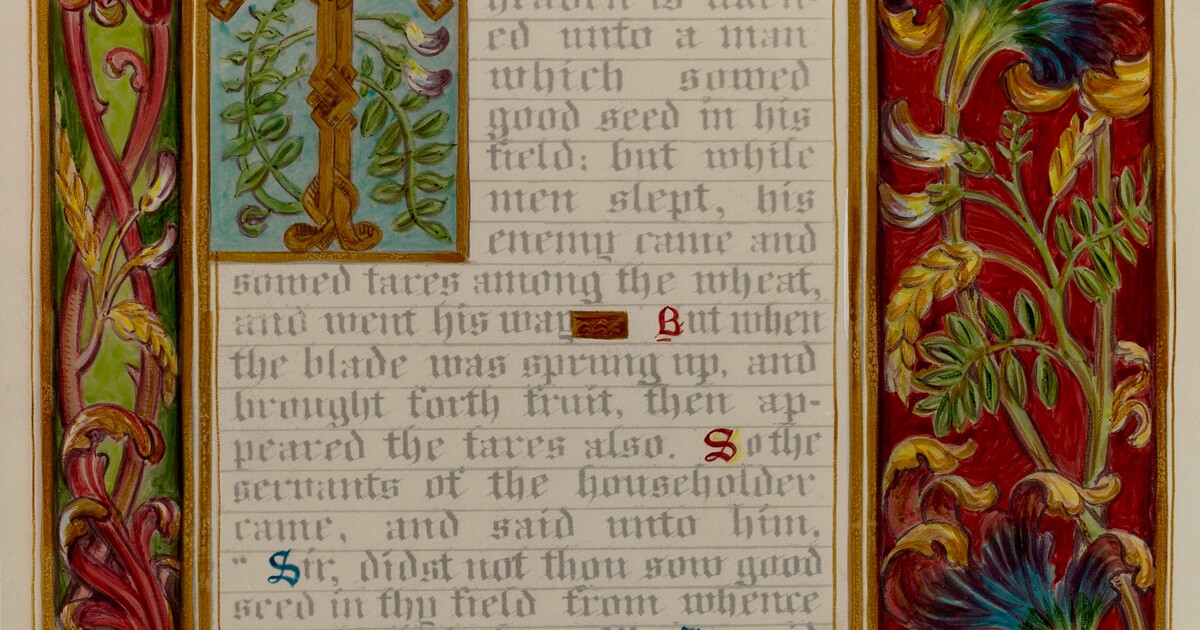 T
heaven is liken-
ed unto a man
which sowed
good seed in his
field: but while
men slept, his
enemy came and
sowed tares among the wheat,
and went his way But when
the blade was sprung up, and
brought forth fruit, then ap-
peared the tares also. So the
servants of the householder
came, and said unto him,
“ Sir, didst not thou sow good
seed in thy field from whence